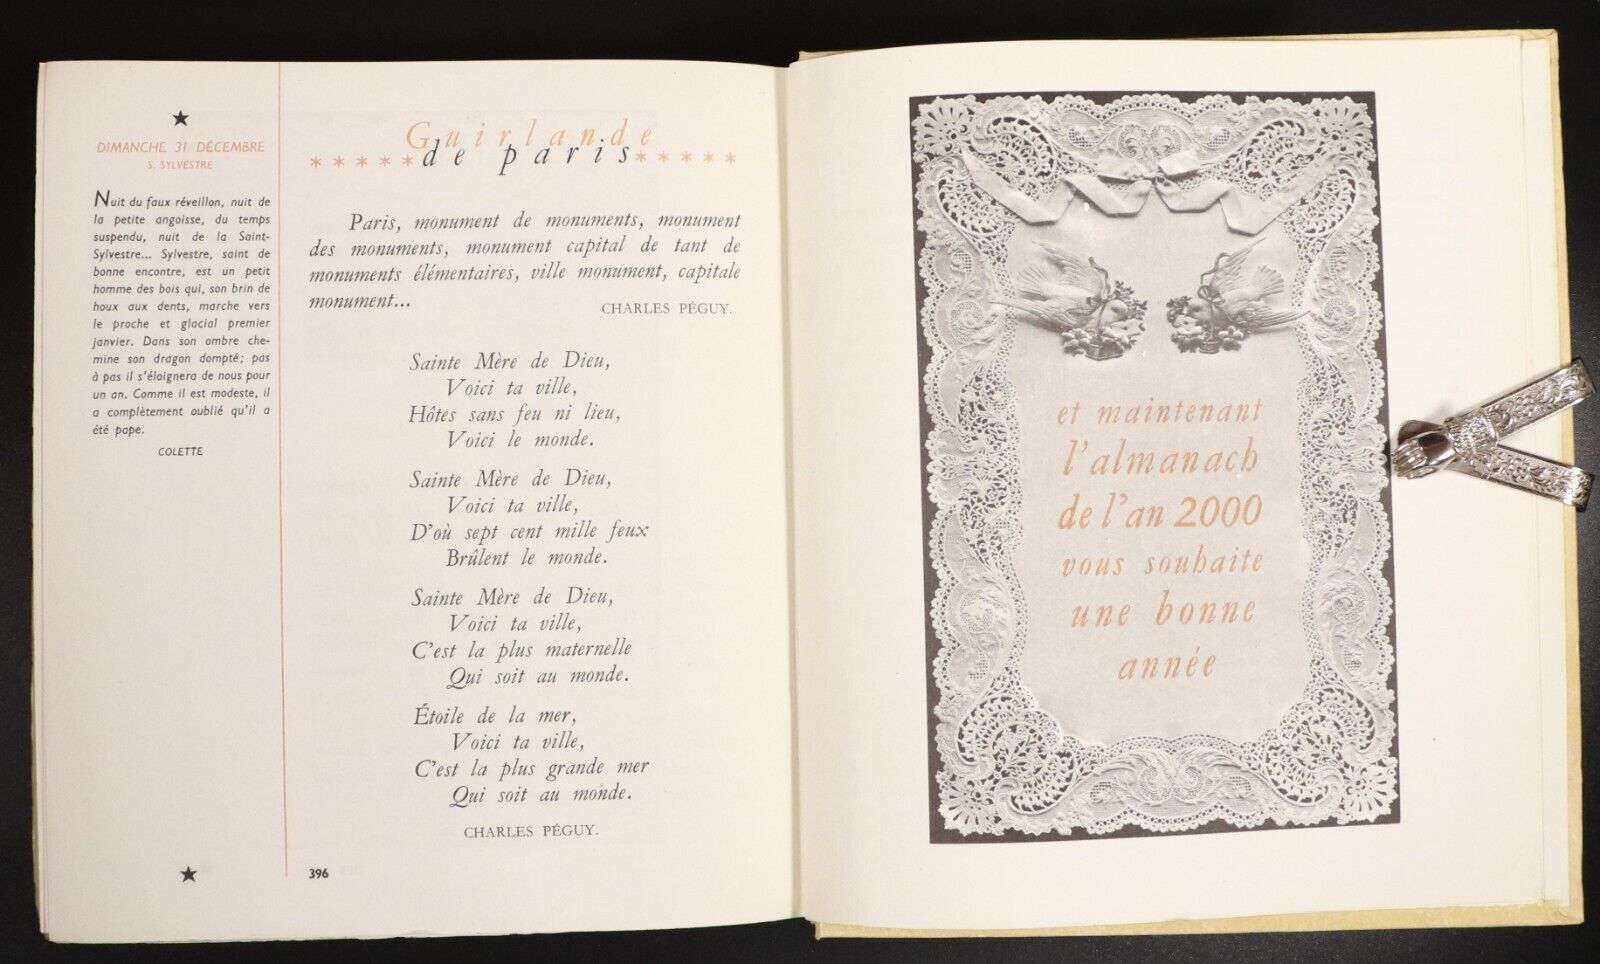 DIMANCHE 31 DÉCEMBRE
S. SYLVESTRE
Nuit du faux réveillon, nuit de
la petite angoisse, du temps
suspendu, nuit de la Saint-
Sylvestre... Sylvestre, saint de
bonne encontre, est un petit
homme des bois qui, son brin de
houx aux dents, marche vers
le proche et glacial premier
janvier. Dans son ombre che-
mine son dragon dompté; pas
à pas il s'éloignera de nous pour
un an. Comme il est modeste, il
a complètement oublié qu'il a
été pape.
COLETTE
Guirlande
*****de paris*****
Paris, monument de monuments, monument
des monuments, monument capital de tant de
monuments élémentaires, ville monument, capitale
monument...
CHARLES PÉGUY.
Sainte Mère de Dieu,
Voici ta ville,
Hôtes sans feu ni lieu,
Voici le monde.
Sainte Mère de Dieu,
Voici ta ville,
D'où sept cent mille feux
Brûlent le monde.
Sainte Mère de Dieu,
Voici ta ville,
C'est la plus maternelle
Qui soit au monde.
Étoile de la mer,
Voici ta ville,
C'est la plus grande mer
Qui soit au monde.
CHARLES PÉGUY.
396
et maintenant
l'almanach
de l'an 2000
vous souhaite
une bonne
année